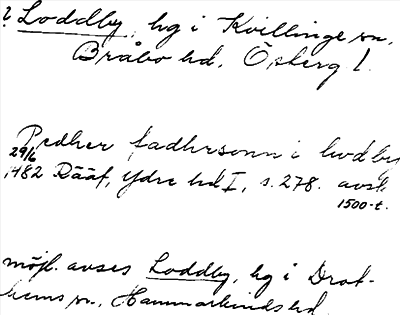 ? Loddby, hg i Kvillinge sn,
Bråbo hd, Ösherg l.
Pedher fadhersonn i lwdby
29/6
1482 Rääf, Ydre hd I, s. 278. avskr.
1500-t.
möjl. avses Loddby, hg i Drot-
hems sn, Hammarkinds hd